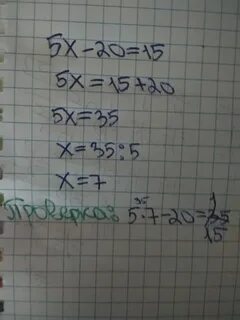 5x-20=15
5x=15+20
5x=35
x=35:5
x=7
Проверка: 5·7-20=15